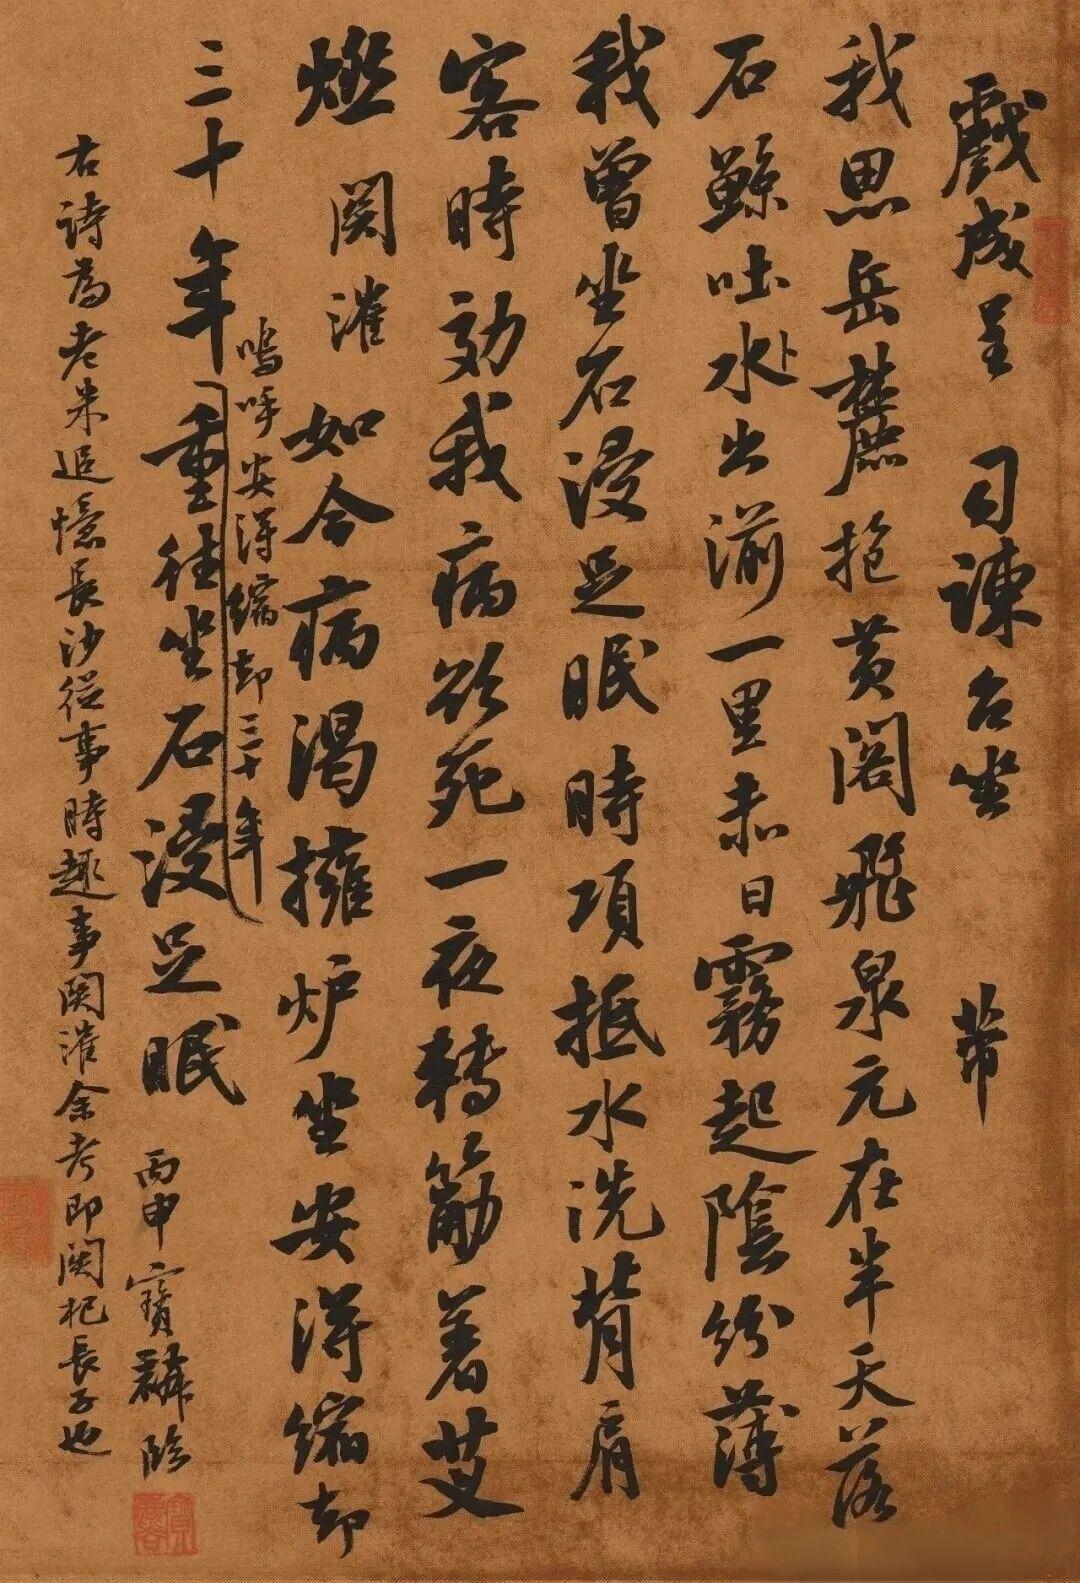 戲成呈 司諫台坐 芾
我思岳麓抱黄閣飛泉元在半天落
石鯨吐水出湔一里赤日霧起陰紛薄
我曾坐石浸足眠時項抵水洗背肩
客時効我病欲死一夜轉筋着艾
燃 関澥 如今病渴擁炉坐安得縮却
嗚呼安得縮却三十年
三十年重往坐石浸足眠
丙申寶麟臨
右詩為老米追憶長沙從事時趣事関澥余考即関杞長子也